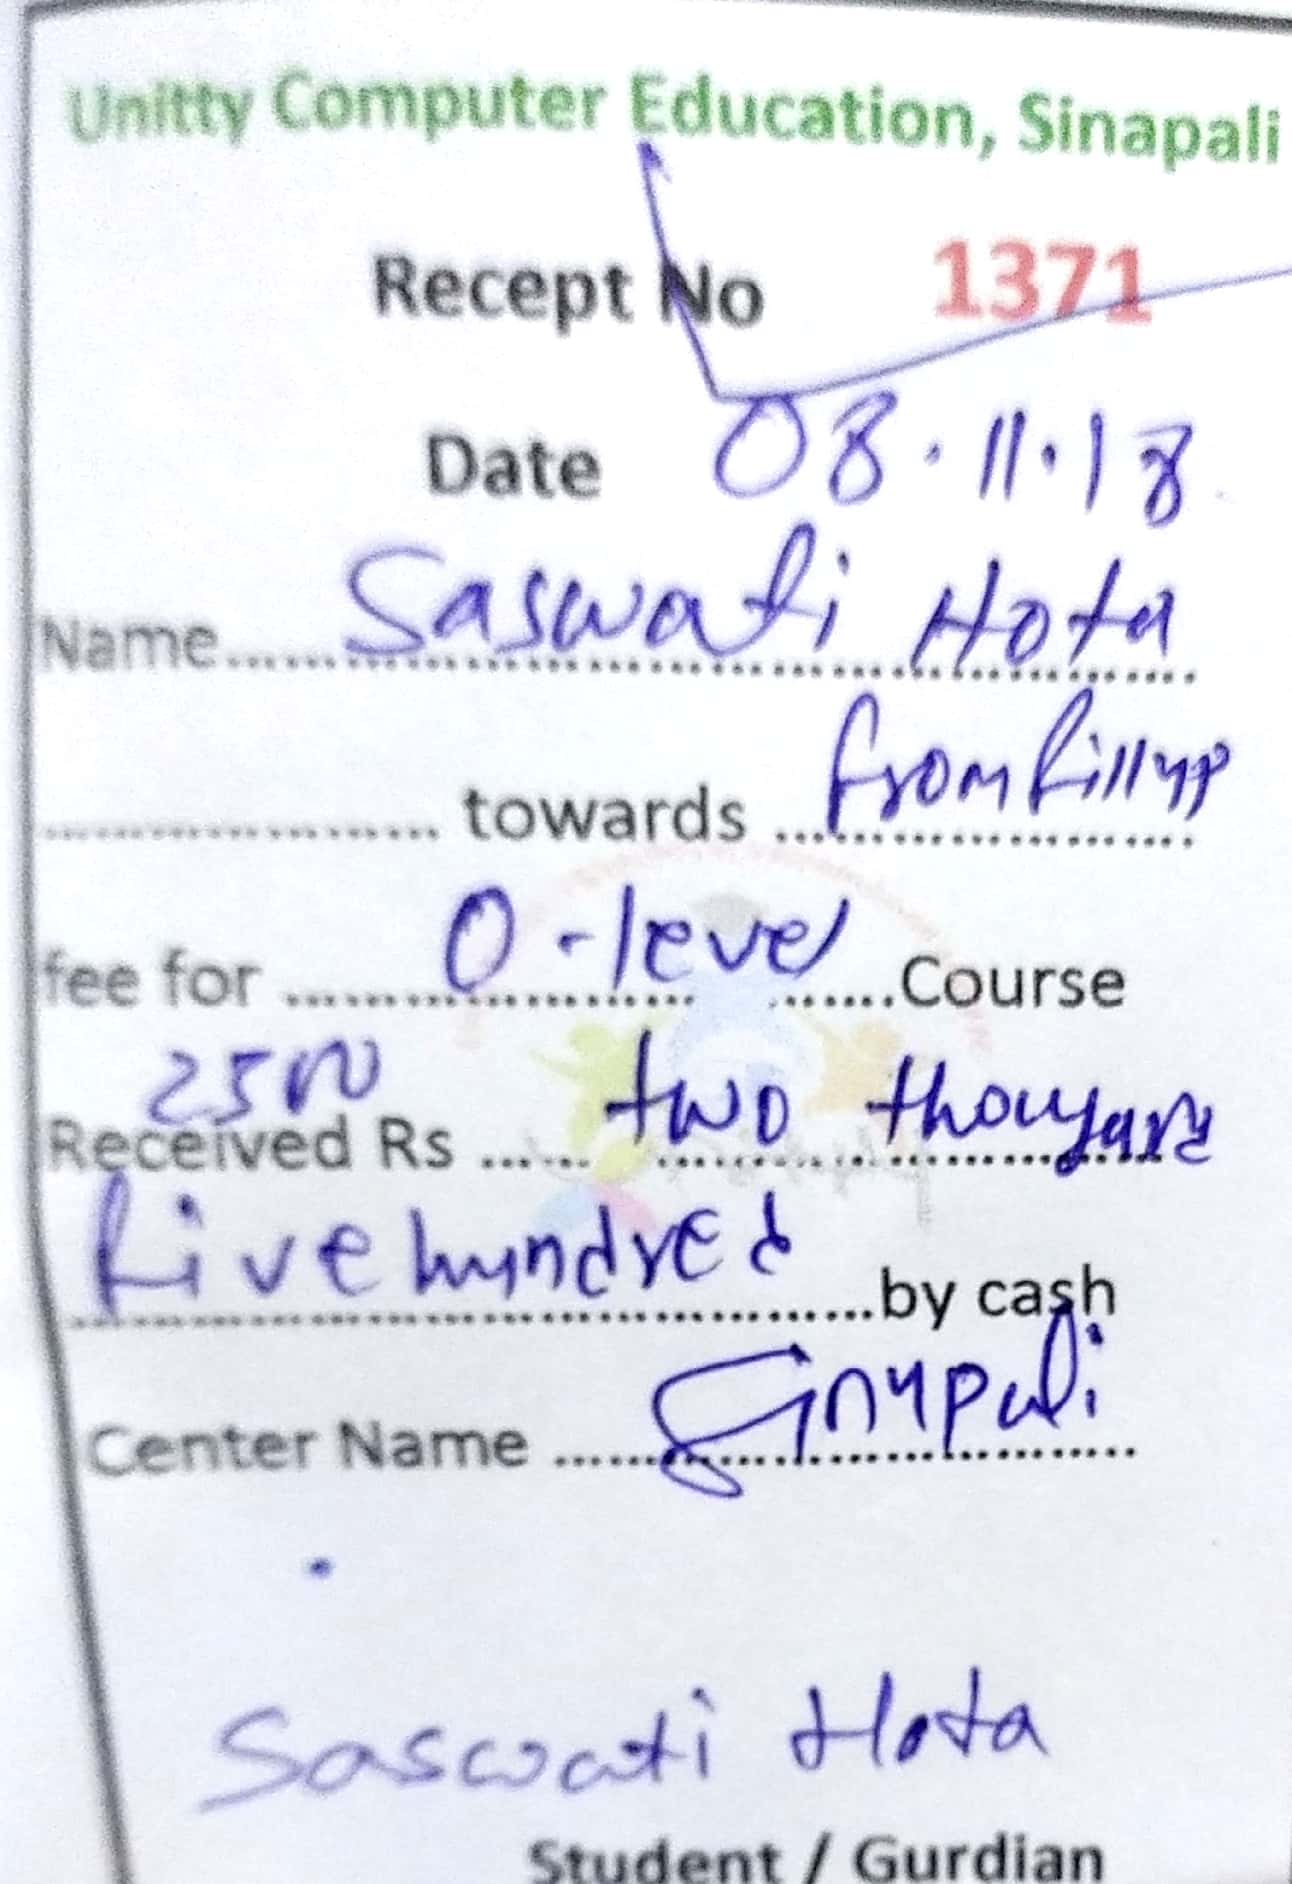 Unitty Computer Education, Sinapali
Recept No 1371
Date 08.11.18
Name...... Saswati Hota
.................... towards ... from fillup
fee for ...... O-level .......Course
2500
Received Rs ...... two thousand
five hundred ...by cash
Center Name ...... Sinapali
Saswati Hota
Student / Gurdian